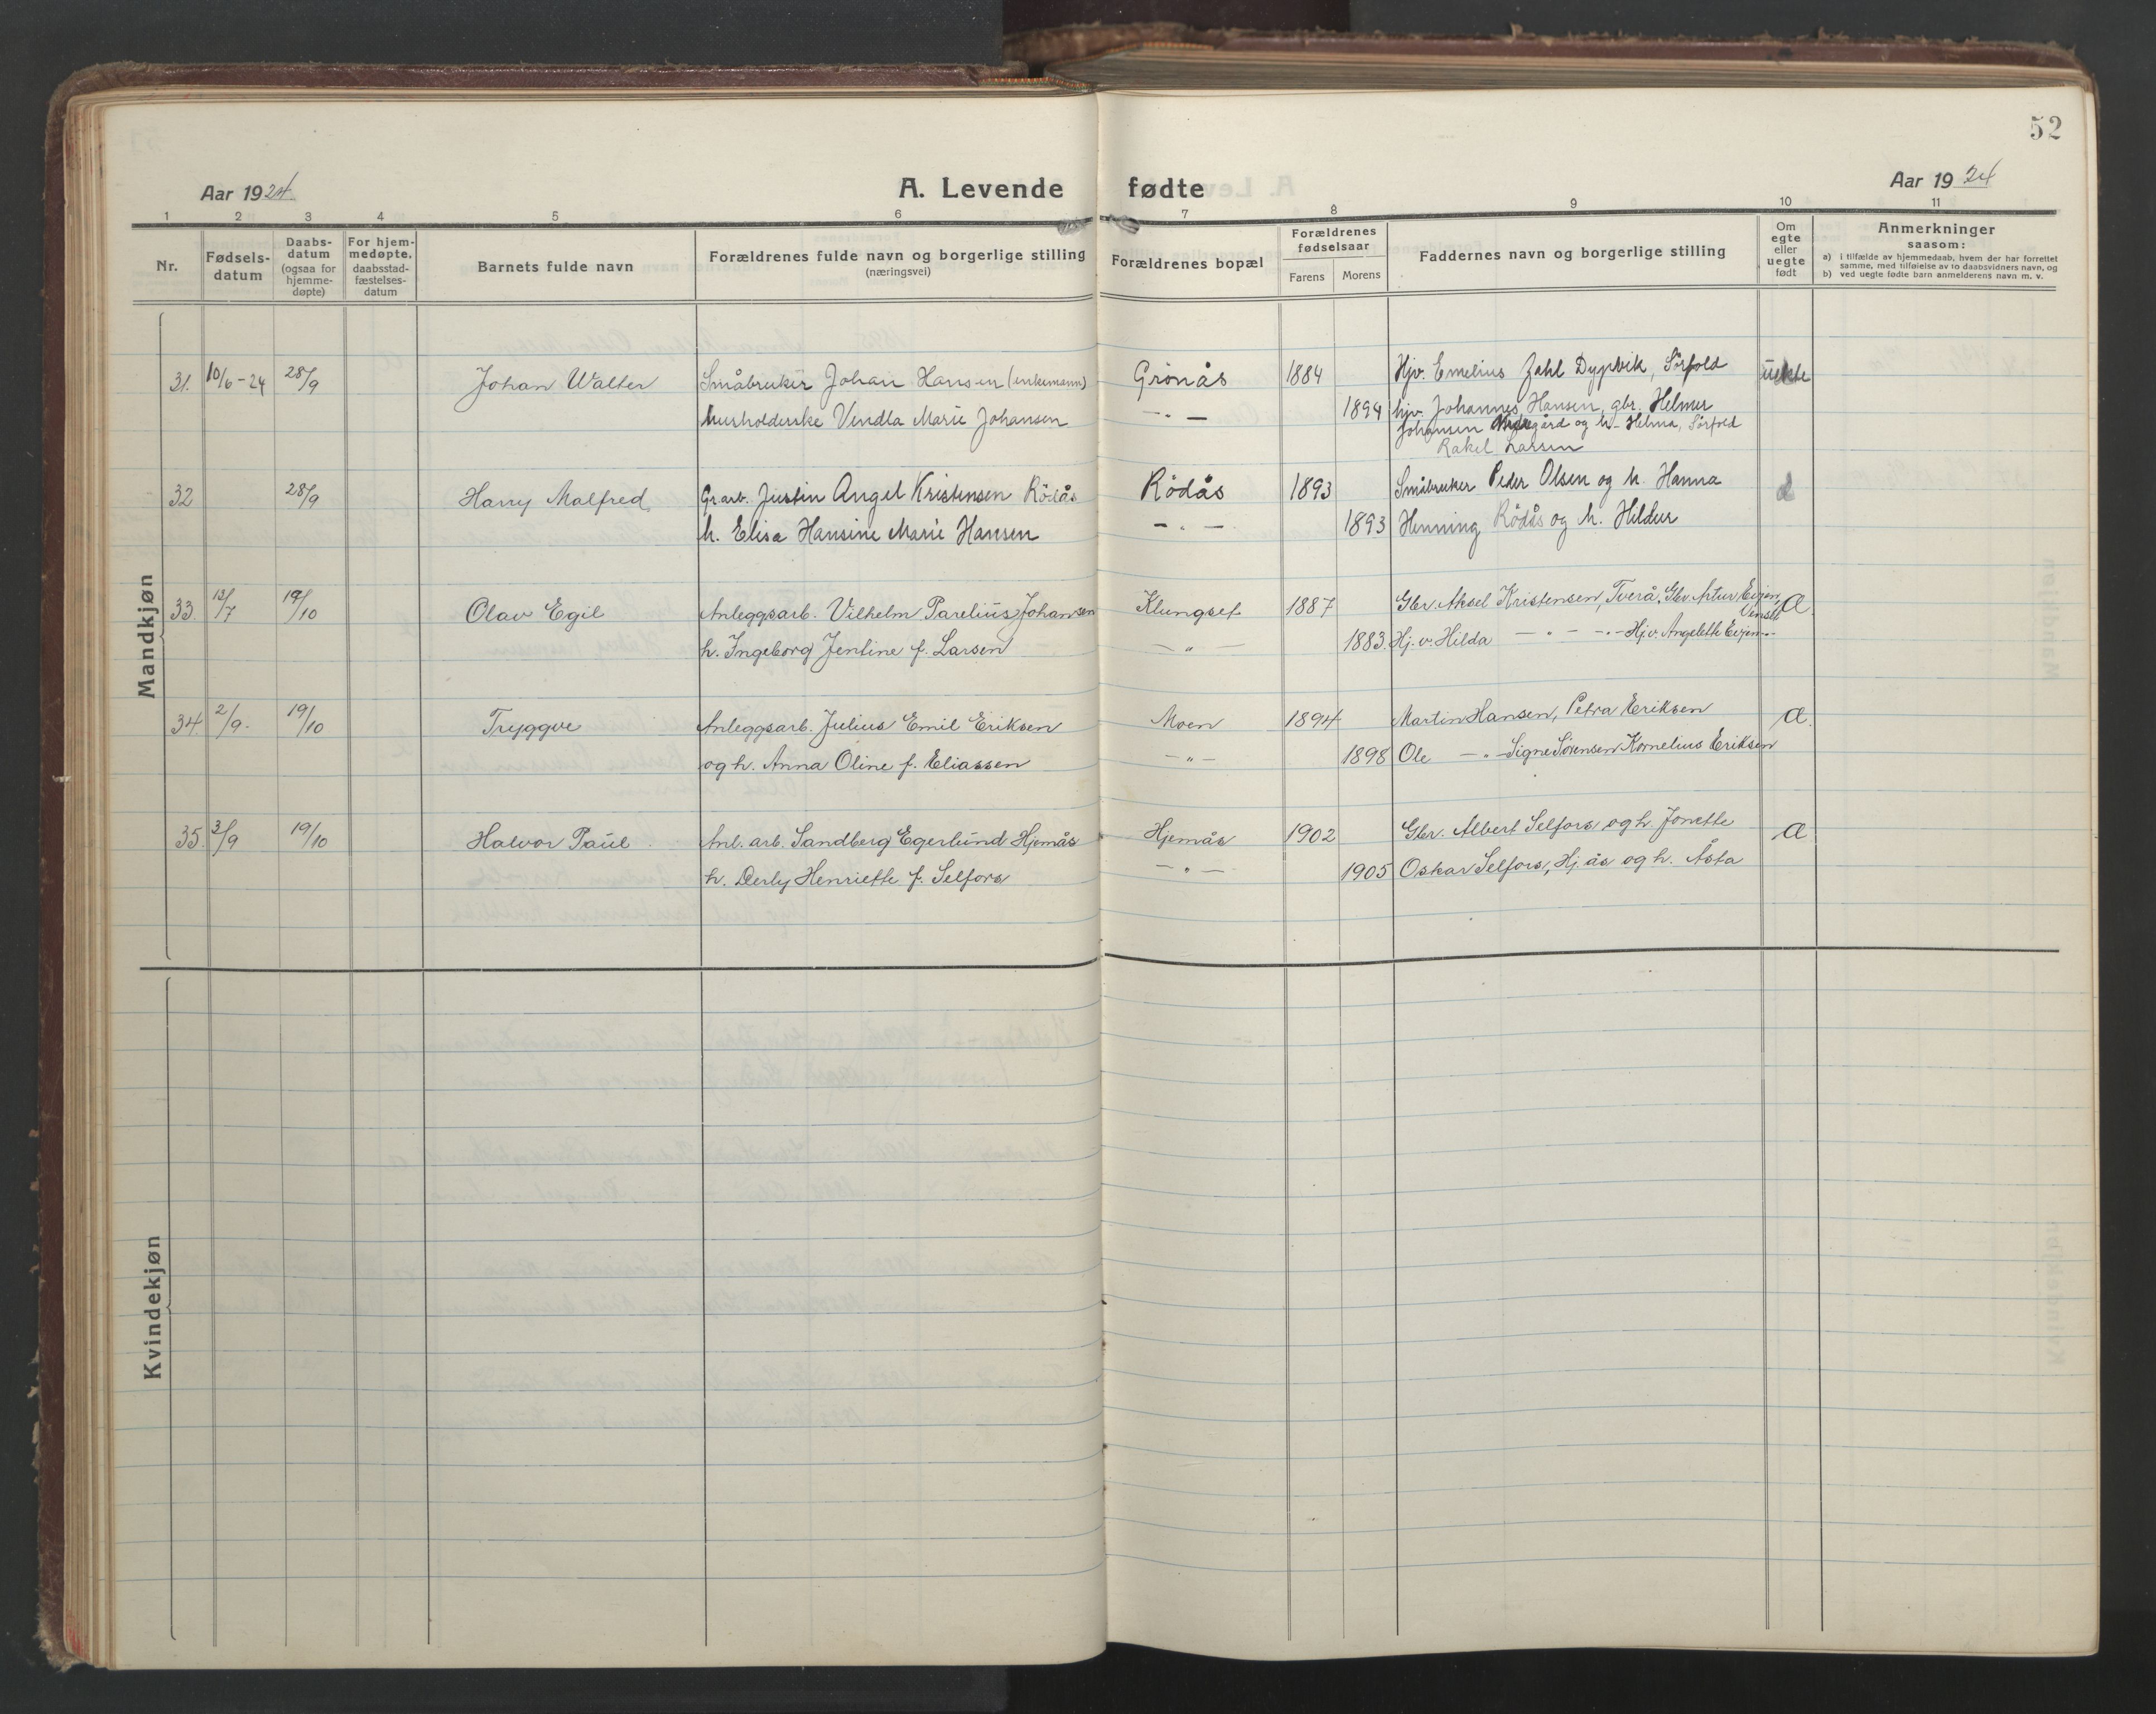 52
Aar 1924.
A. Levende fødte
Aar 1924
1 2 3 4 5 6 7 8 9 10 11
Nr.
Fødsels-
datum
Daabs-
datum
(ogsaa for
hjemme-
døpte)
For hjem-
medøpte,
daabsstad-
fæstelses-
datum
Barnets fulde navn
Forældrenes fulde navn og borgerlige stilling
(næringsvei)
Forældrenes bopæl
Forældrenes
fødselsaar
Farens Morens
Faddernes navn og borgerlige stilling
Om
egte
eller
uegte
født
Anmerkninger
saasom:
a) i tilfælde av hjemmedaab, hvem der har forrettet
samme, med tilføielse av to daabsvidners navn, og
b) ved uegte fødte barn anmelderens navn m. v.
Mandkjøn
31. 10/6-24 28/9 Johan Walter Småbruker Johan Hansen (enkemann) Grönås 1884 Hjv. Emelius Zahl Dypvik, Sörfold uekte
husholderske Vendla Marie Johansen -"- 1894 hjv. Johannes Hansen, gbr. Helmer
Johansen og h. Helma, Sörfold
Rakel Larsen
32 28/9 Harry Malfred Gr.arb. Justin Angel Kristensen Rödås Rödås 1893 Småbruker Peder Olsen og h. Hanna
h. Elisa Hansine Marie Hansen -"- 1893 Henning Rödås og h. Hildur
33. 13/7 19/10 Olav Egil Anleggsarb. Vilhelm Parelius Johansen Klungset 1887 Gbr. Aksel Kristensen, Tverå, Gbr. Artur Evjen, Venset a.
h. Ingeborg Jentine f. Larsen -"- 1883. Hj.v. Hilda -"- -"- Hj.v. Angelette Evjen -"-
34. 2/9. 19/10 Tryggve Anleggsarb. Julius Emil Eriksen Moen 1894 Martin Hansen, Petra Eriksen a.
og h. Anna Oline f. Eliassen -"- 1898 Ole -"- Signe Sörensen Kornelius Eriksen
35. 3/9 19/10 Halvor Paul Anl. arb. Sandberg Egerlund Hjemås Hjemås 1902 Gbr. Albert Selfors og h. Jonette a
h. Derly Henriette f. Selfors -"- 1905 Oskar Selfors, Hj.ås og h. Åsta
Kvindekjøn